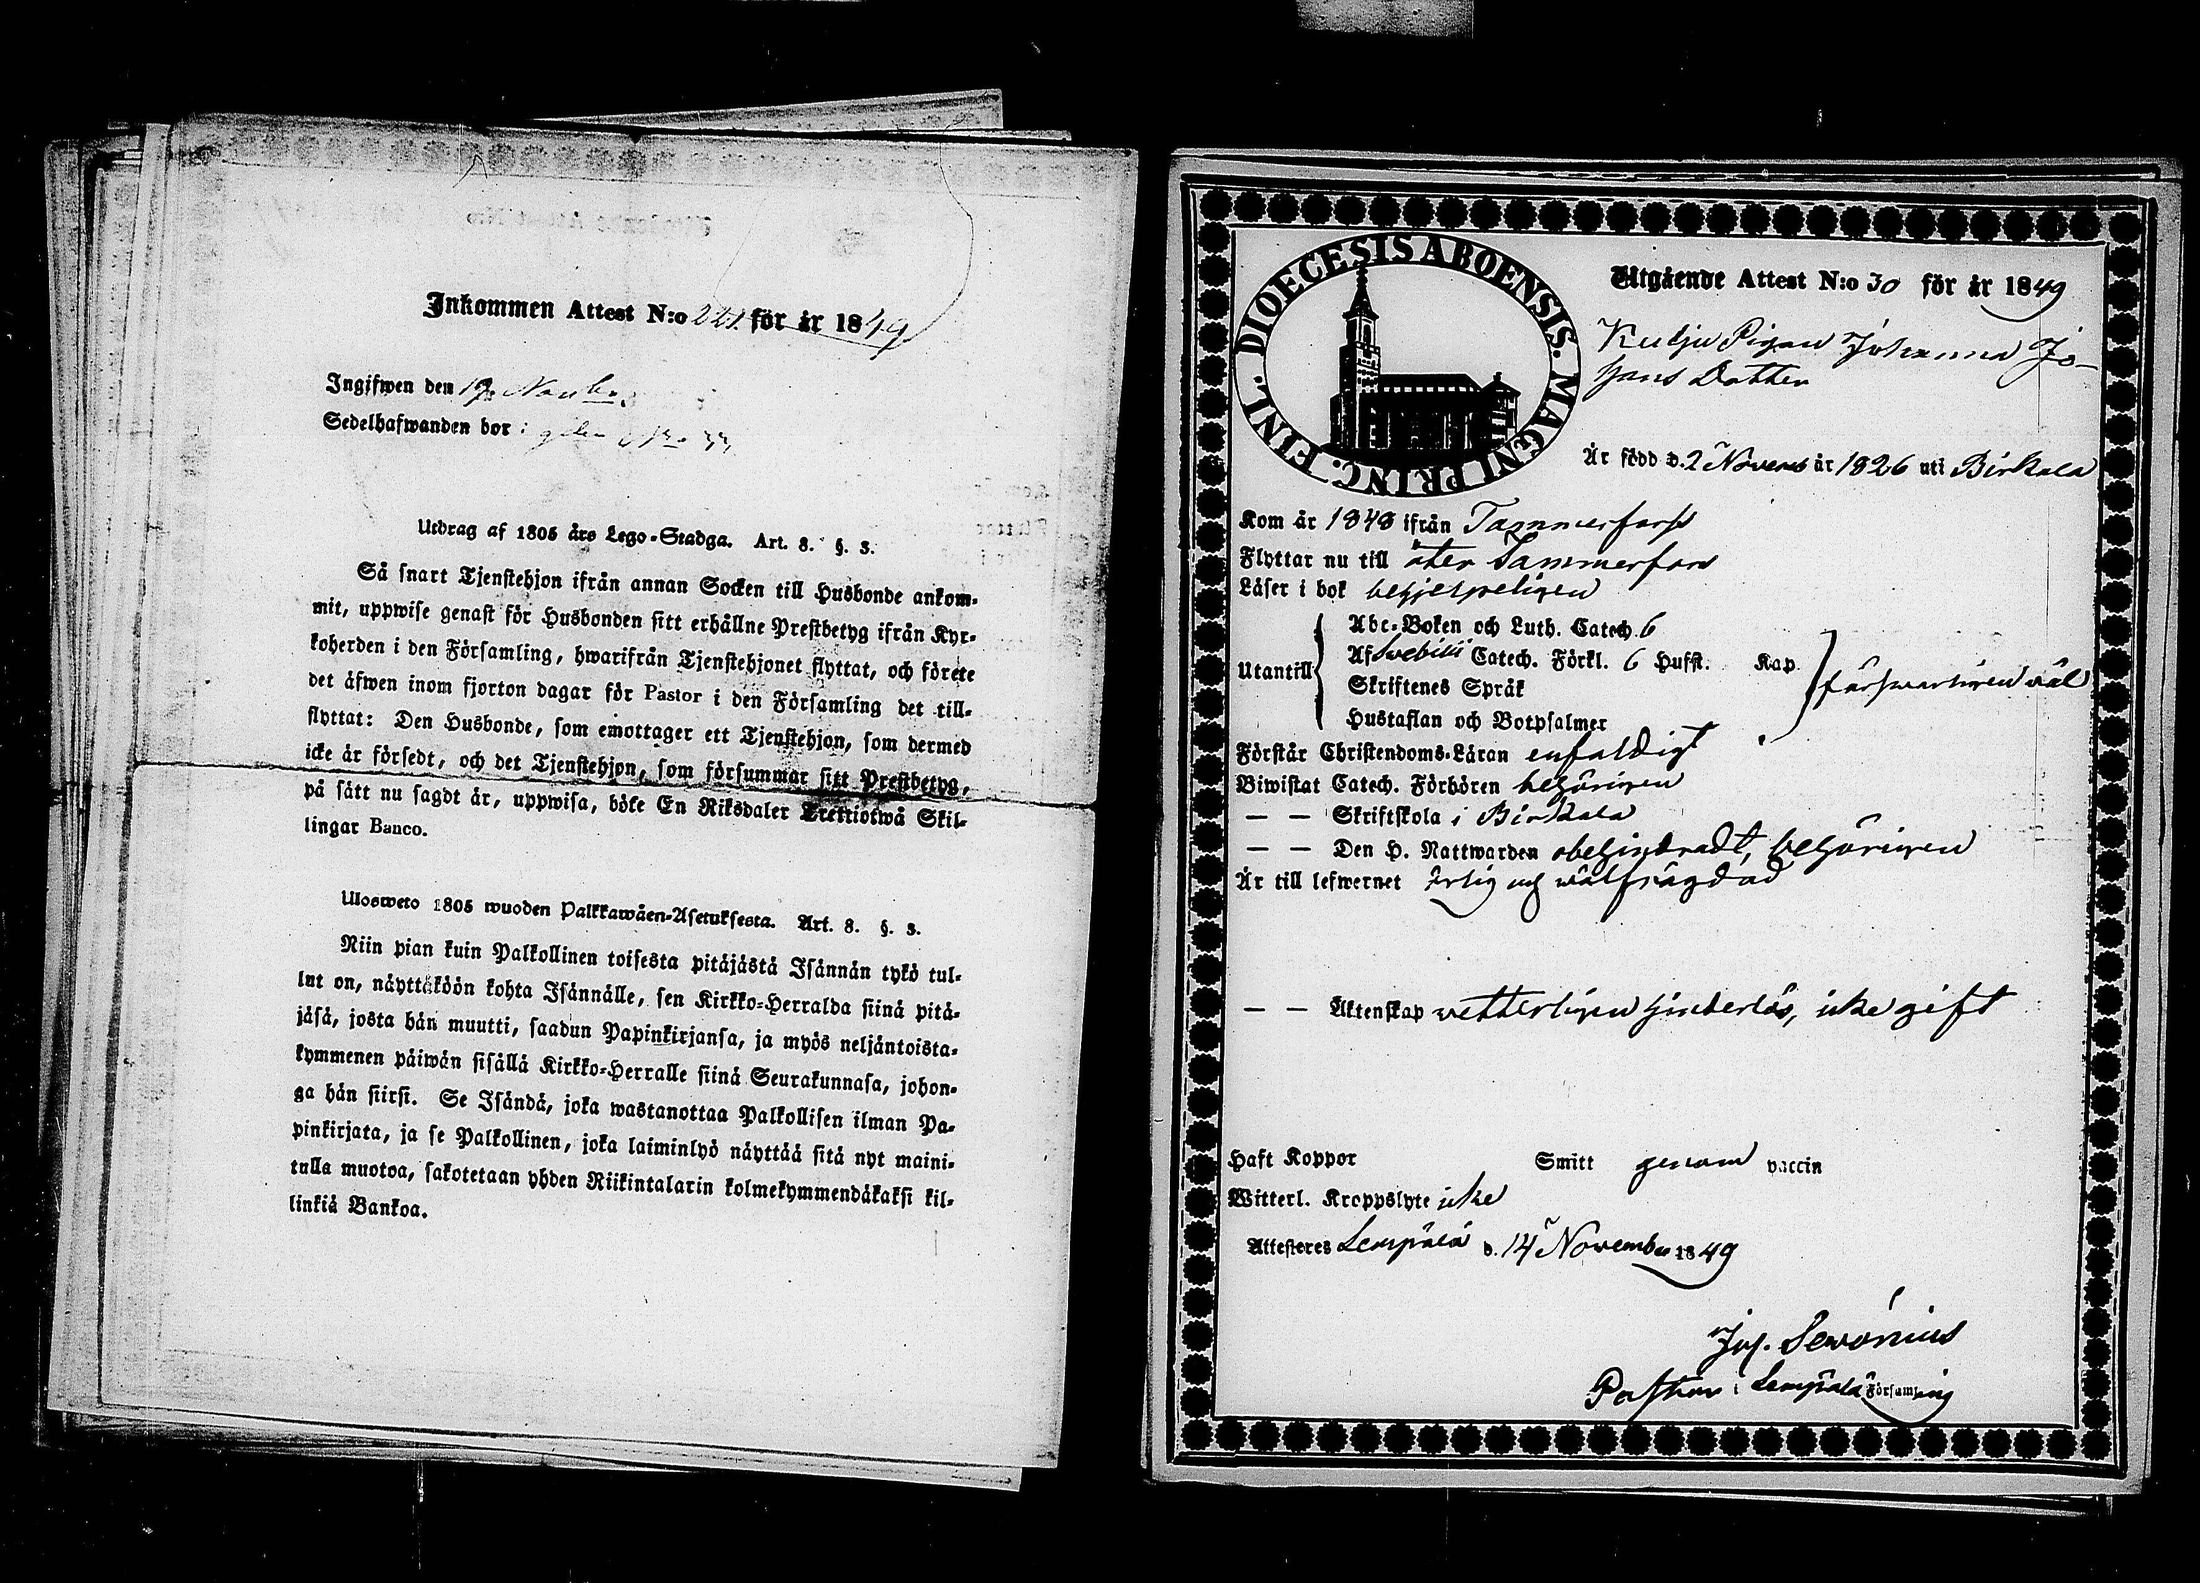 Inkommen Attest N:o 221. för år 1849
Ingifwen den 19. Novber.
Sedelhafwanden bor :
Utdrag af 1805 års Lego-Stadga. Art. 8. §. 3.
Så snart Tjenstehjon ifrån annan Socken till Husbonde ankom-
mit, uppwise genast för Husbonden sitt erhållne Prestbetyg ifrån Kyr-
koherden i den Församling, hwarifrån Tjenstehjonet flyttat, och förete
det äfwen inom fjorton dagar för Pastor i den Församling det till-
flyttat: Den Husbonde, som emottager ett Tjenstehjon, som dermed
icke är försedt, och det Tjenstehjon, som försummar sitt Prestbetyg,
på sätt nu sagdt är, uppwisa, böte En Riksdaler Trettiotwå Skil-
lingar Banco.
Ulosweto 1805 wuoden Palkkawäen-Asetuksesta. Art. 8. §. 3.
Niin pian kuin Palkollinen toisesta pitäjästä Isännän tykö tul-
lut on, näyttäköön kohta Isännälle, sen Kirkko-Herralda siinä pitä-
jäsä, josta hän muutti, saadun Papinkirjansa, ja myös neljäntoista-
kymmenen päiwän sisällä Kirkko-Herralle siinä Seurakunnasa, johon-
ga hän siirsi. Se Isändä, joka wastanottaa Palkollisen ilman Pa-
pinkirjata, ja se Palkollinen, joka laiminlyö näyttää sitä nyt maini-
tulla muotoa, sakotetaan yhden Riikintalarin kolmekymmendäkaksi kil-
linkiä Bankoa.
DIOECESIS ABOENSIS. MAGNI PRINC. FINL.
Utgående Attest N:o 30 för år 1849
Pigan Johanna Jo-
hans Dotter
Är född d. 2 Novemb år 1826 uti Birkala
Kom år 1848 ifrån Tammerfors
Flyttar nu till åter Tammerfors
Läser i bok behjelpeligen
Utantill
Abc-Boken och Luth. Catech. 6
Af Svebilii Catech. Förkl. 6 Hufst. Kap.
Skriftenes Språk
Hustaflan och Botpsalmer
försvarligen väl
Förstår Christendoms-Läran enfaldigt
Biwistat Catech. Förhören behörigen
— — Skriftskola i Birkala
— — Den H. Nattwarden obehindradt, behörigen
Är till lefwernet ärlig och wälfrägdad
— — Äktenskap vetterligen hinderlös, icke gift
Haft Koppor Smitt genom vaccin
Witterl. Kroppslyte icke
Attesteres Lempälä d. 14 November 1849
Jos. Sevonius
Pastor i Lempälä Församling